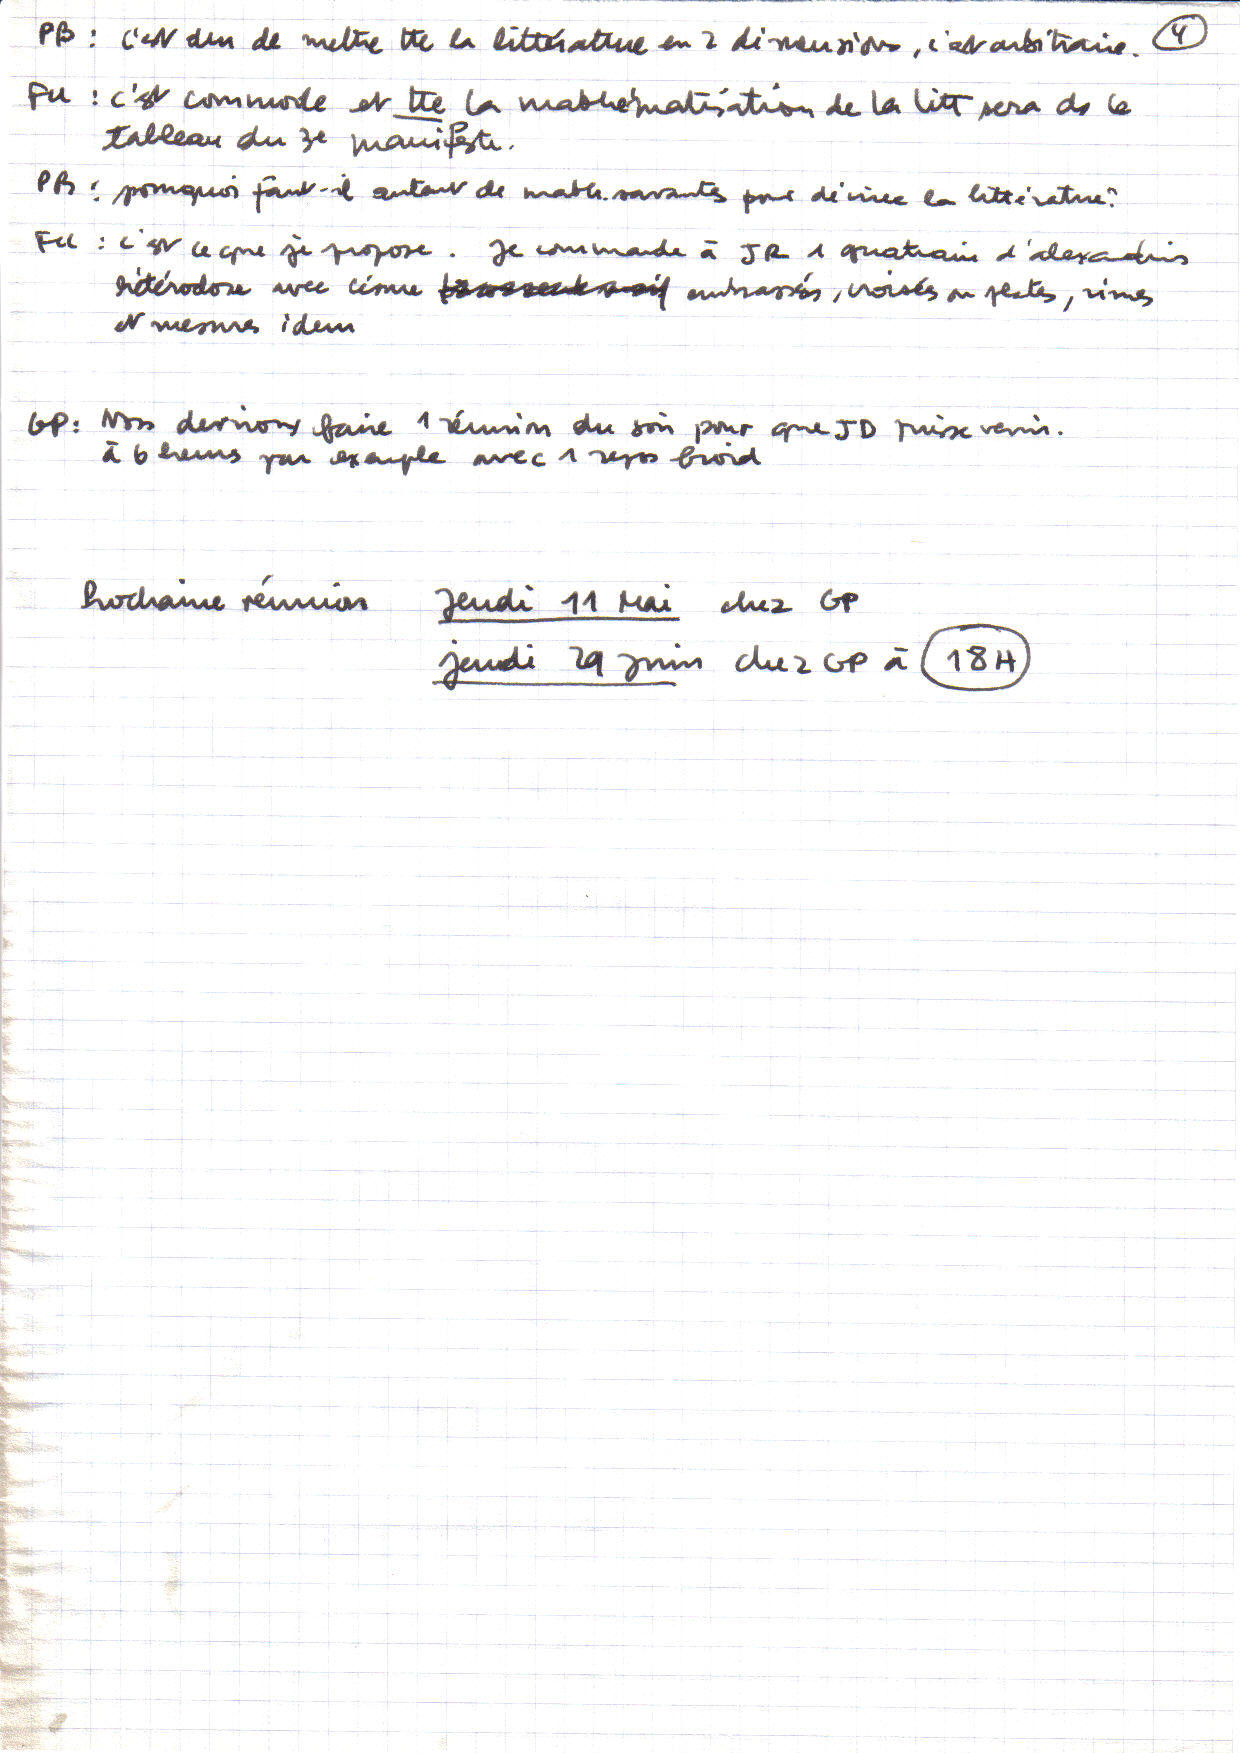 PB : c'est dur de mettre tte la littérature en 2 dimensions, c'est arbitraire. 4
FLL : c'est commode et tte la mathématisation de la litt sera ds le
tableau du 3e manifeste.
PB : pourquoi faut-il autant de math. savantes pour décrire la littérature?
FLL : c'est ce que je propose. Je commande à JR 1 quatrain d'alexandrins
hétérodoxe avec césure embrassés, croisés ou plates, rimes
et mesures idem
GP : Nous devrions faire 1 réunion du soir pour que JD puisse venir.
à 6 heures par exemple avec 1 repas froid
Prochaine réunion jeudi 11 Mai chez GP
jeudi 29 juin chez GP à 18H